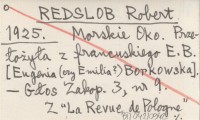 REDSLOB Robert
1925. Morskie Oko. Prze-
łożyła z francuskiego E.B.
[Eugenia (czy Emilia?) Borkowska].
— Głos Zakop. 3, nr 9.
Z "La Revue de Pologne"